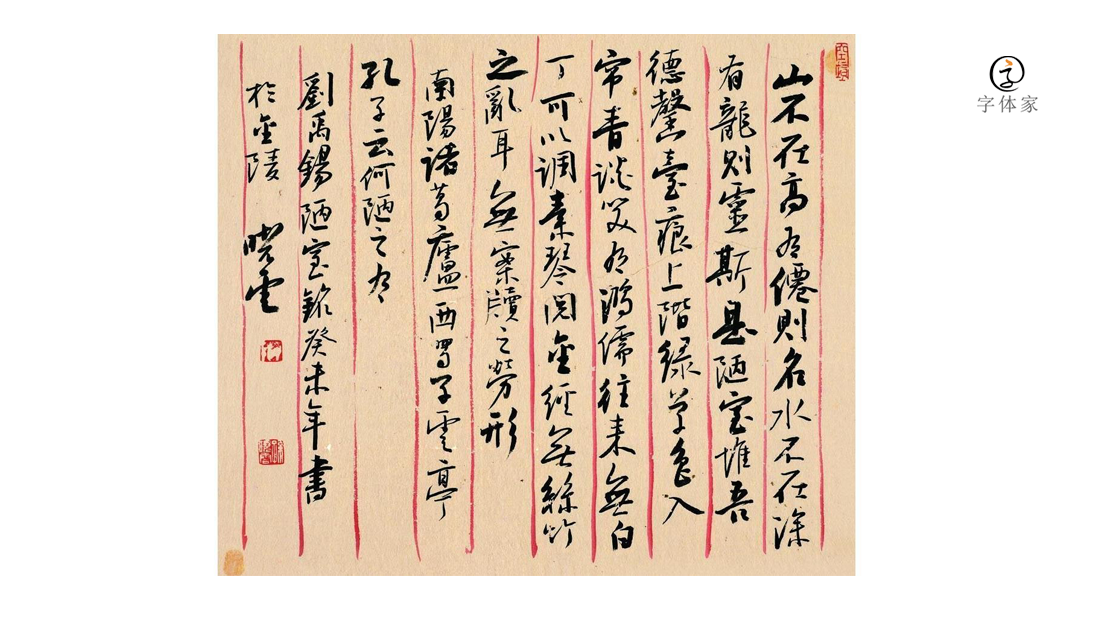 山不在高有僊則名水不在深
有龍則靈斯是陋室惟吾
德馨臺痕上階緑草色入
帘青談笑有鴻儒往来無白
丁可以調素琴閲金經無絲竹
之亂耳無案牘之勞形
南陽諸葛廬西蜀子雲亭
孔子云何陋之有
劉禹錫陋室銘癸未年書
於金陵 曉雲
字体家